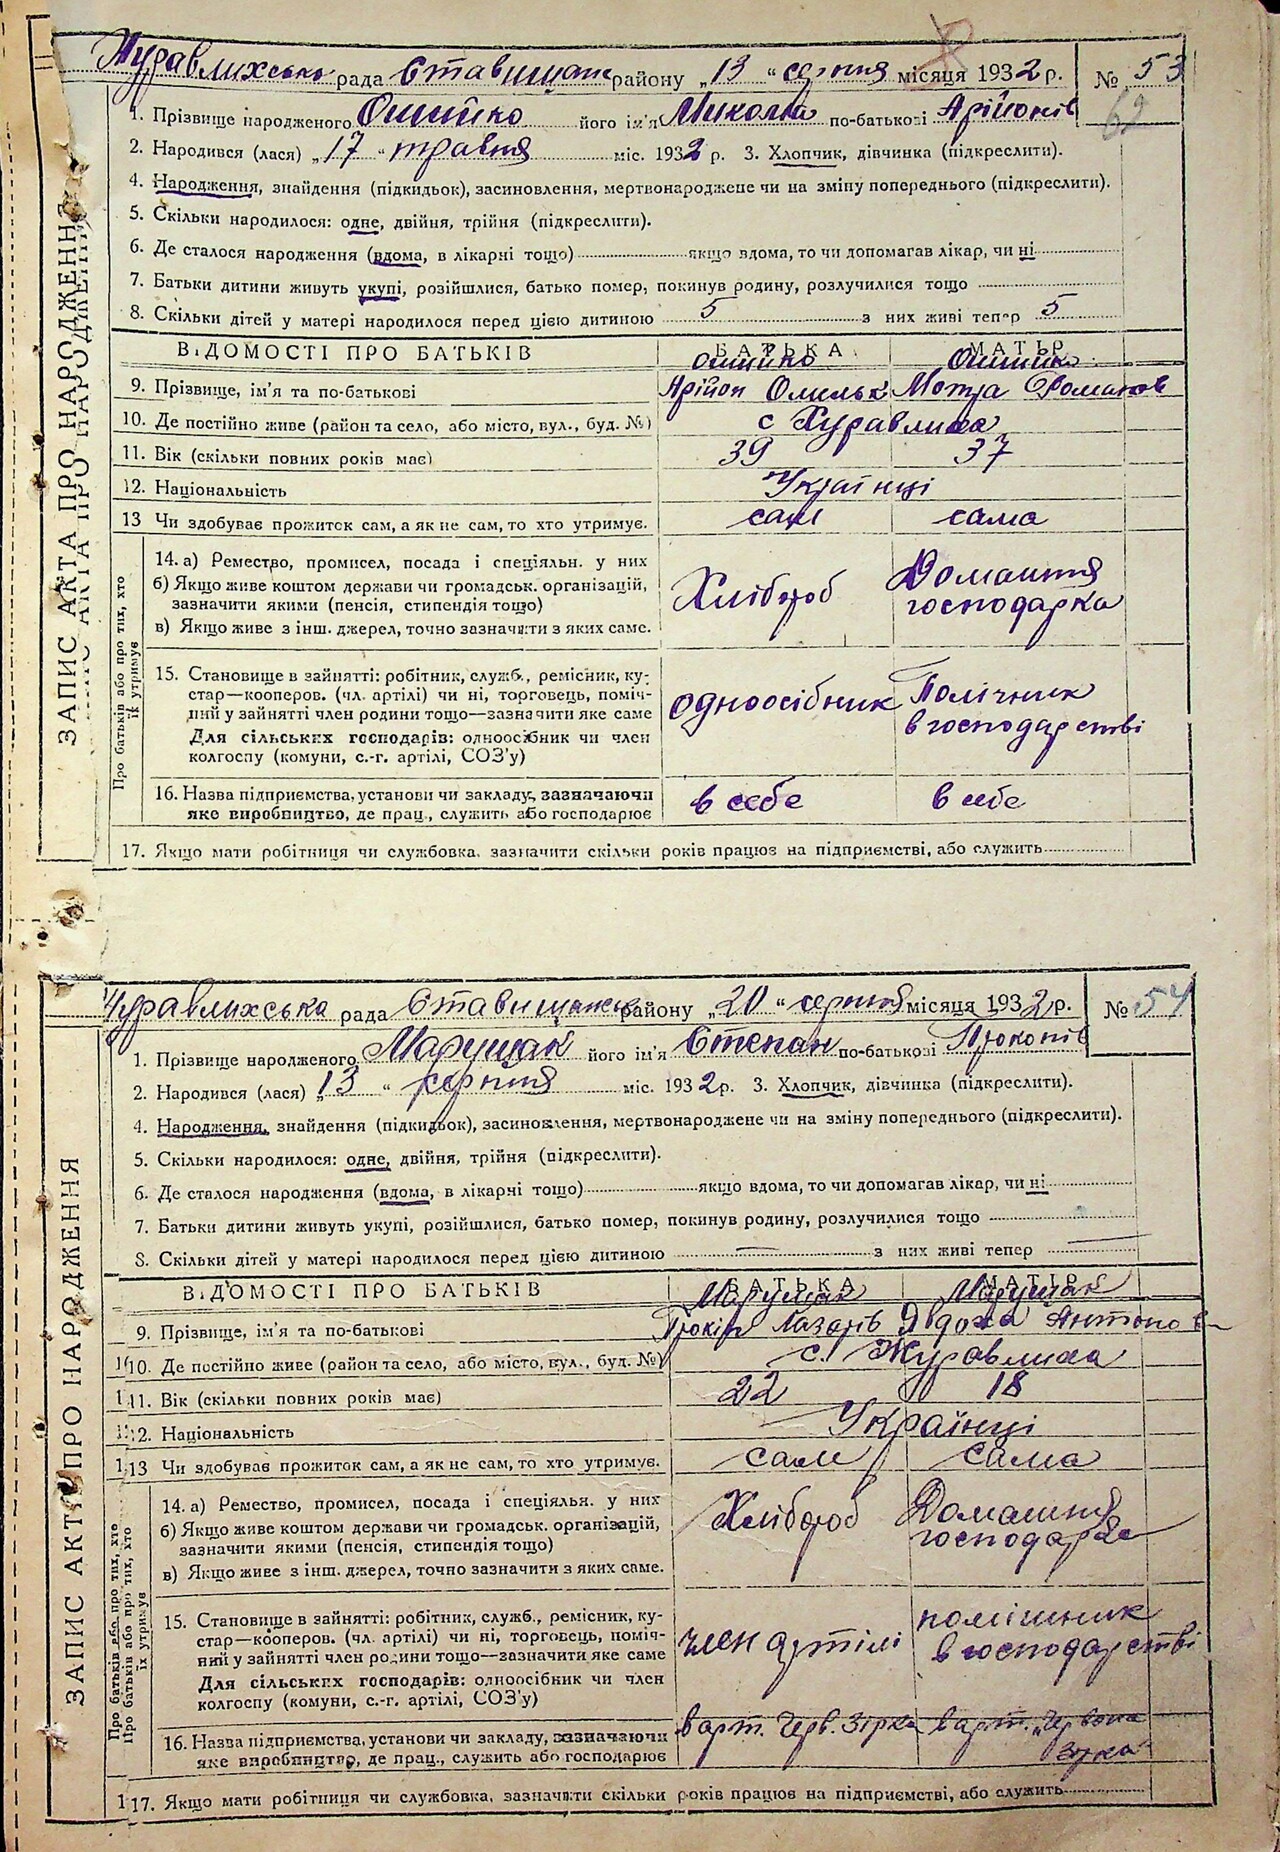 Журавлихська рада Ставищанс району „13“ серпня місяця 1932 р. № 53
62
1. Прізвище народженого Ошийко його ім'я Микола по-батькові Арійонів
2. Народився (лася) „17“ травня міс. 1932 р. 3. Хлопчик, дівчинка (підкреслити).
4. Народження, знайдення (підкидьок), засиновлення, мертвонароджене чи на зміну попереднього (підкреслити).
5. Скільки народилося: одне, двійня, трійня (підкреслити).
6. Де сталося народження (вдома, в лікарні тощо) якщо вдома, то чи допомагав лікар, чи ні
7. Батьки дитини живуть укупі, розійшлися, батько помер, покинув родину, розлучилися тощо
8. Скільки дітей у матері народилося перед цією дитиною 5 з них живі тепер 5
ВІДОМОСТІ ПРО БАТЬКІВ БАТЬКА МАТІР
Ошийко Ошийко
9. Прізвище, ім'я та по-батькові Арійон Омельк Мотря Романов
10. Де постійно живе (район та село, або місто, вул., буд. №) с Журавлиха
11. Вік (скільки повних років має) 39 37
12. Національність Українці
13 Чи здобуває прожиток сам, а як не сам, то хто утримує. сам сама
14. а) Ремество, промисел, посада і спеціяльн. у них
б) Якщо живе коштом держави чи громадськ. організацій,
зазначити якими (пенсія, стипендія тощо)
в) Якщо живе з інш. джерел, точно зазначити з яких саме.
Хлібороб Домашня
господарка
15. Становище в зайнятті: робітник, служб., ремісник, ку-
стар—кооперов. (чл. артілі) чи ні, торговець, поміч-
ний у зайнятті член родини тощо—зазначити яке саме
Для сільських господарів: одноосібник чи член
колгоспу (комуни, с.-г. артілі, СОЗ'у)
одноосібник Помічник
в господарстві
16. Назва підприємства, установи чи закладу, зазначаючи
яке виробництво, де прац., служить або господарює
в себе в себе
17. Якщо мати робітниця чи службовка, зазначити скільки років працює на підприємстві, або служить
ЗАПИС АКТА ПРО НАРОДЖЕННЯ
Про батьків або про тих, хто
їх утримує
Журавлихська рада Ставищанськ району „20“ серпня місяця 1932 р. № 54
1. Прізвище народженого Марущак його ім'я Степан по-батькові Прокопів
2. Народився (лася) „13“ серпня міс. 1932 р. 3. Хлопчик, дівчинка (підкреслити).
4. Народження, знайдення (підкидьок), засиновлення, мертвонароджене чи на зміну попереднього (підкреслити).
5. Скільки народилося: одне, двійня, трійня (підкреслити).
6. Де сталося народження (вдома, в лікарні тощо) якщо вдома, то чи допомагав лікар, чи ні
7. Батьки дитини живуть укупі, розійшлися, батько помер, покинув родину, розлучилися тощо
8. Скільки дітей у матері народилося перед цією дитиною — з них живі тепер —
ВІДОМОСТІ ПРО БАТЬКІВ БАТЬКА МАТІР
Марущак Марущак
9. Прізвище, ім'я та по-батькові Прокіп Лазарів Явдоха Антонов
10. Де постійно живе (район та село, або місто, вул., буд. №) с. Журавлиха
11. Вік (скільки повних років має) 22 18
12. Національність Українці
13 Чи здобуває прожиток сам, а як не сам, то хто утримує. сам сама
14. а) Ремество, промисел, посада і спеціялья. у них
б) Якщо живе коштом держави чи громадськ. організацій,
зазначити якими (пенсія, стипендія тощо)
в) Якщо живе з інш. джерел, точно зазначити з яких саме.
Хлібороб Домашня
господарка
15. Становище в зайнятті: робітник, служб., ремісник, ку-
стар—кооперов. (чл. артілі) чи ні, торговець, поміч-
ний у зайнятті член родини тощо—зазначити яке саме
Для сільських господарів: одноосібник чи член
колгоспу (комуни, с.-г. артілі, СОЗ'у)
член артілі помішник
в господарстві
16. Назва підприємства, установи чи закладу, зазначаючи
яке виробництво, де прац., служить або господарює
в арт. Черв. Зірка в арт. „Червона
зірка“
17. Якщо мати робітниця чи службовка, зазначити скільки років працює на підприємстві, або служить
ЗАПИС АКТА ПРО НАРОДЖЕННЯ
Про батьків або про тих, хто
їх утримує